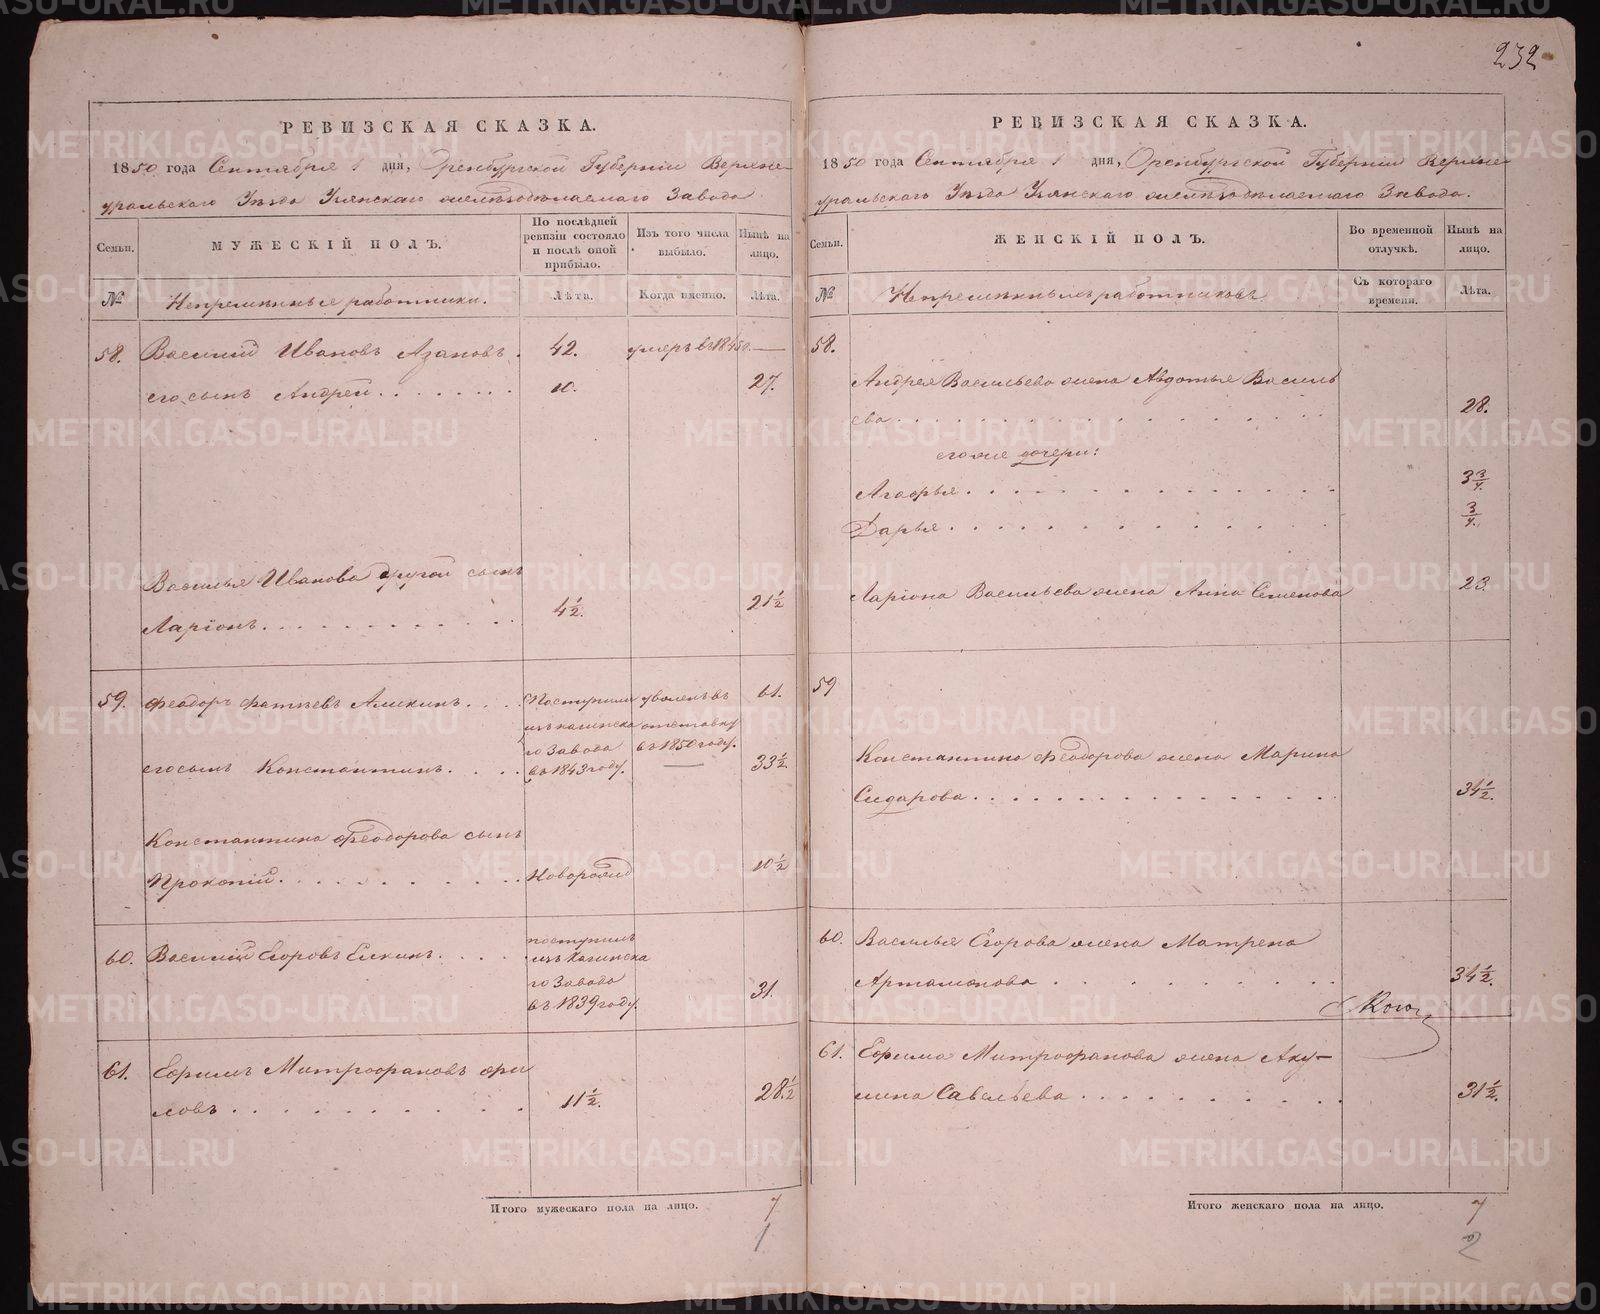 232
РЕВИЗСКАЯ СКАЗКА.
1850 года Сентября 1 дня, Оренбургской Губерніи Верхне-
уральскаго Уѣзда Узянскаго желѣзодѣлаемаго Завода
Семьи.
МУЖЕСКІЙ ПОЛЪ.
По послѣдней ревизіи состояло и послѣ оной прибыло.
Изъ того числа выбыло.
Нынѣ на лицо.
№
Непремѣнные работники.
Лѣта.
Когда именно.
Лѣта.
58. Василій Ивановъ Азановъ. 42. умеръ въ 1845 —
его сынъ Андрей 10. 27.
Василья Иванова другой сынъ
Ларіонъ 4½. 21½
59. Феодоръ Фатѣевъ Аликинъ. Поступили изъ кагинскаго Завода въ 1843 году. уволенъ въ отставку въ 1850 году. 61.
его сынъ Константинъ. — 33½.
Константина Феодорова сынъ
Прокопій. Новорожд 10½
60. Василій Егоровъ Елкинъ. поступилъ изъ Кагинскаго Завода въ 1839 году. 31.
61. Ефимъ Митрофановъ Фри
ловъ 11½. 28.½
Итого мужескаго пола на лицо. 7
1
РЕВИЗСКАЯ СКАЗКА.
1850 года Сентября 1 дня, Оренбургской Губерніи Верхне-
уральскаго Уѣзда Узянскаго желѣзодѣлаемаго Завода.
Семьи.
ЖЕНСКІЙ ПОЛЪ.
Во временной отлучкѣ.
Нынѣ на лицо.
№
Непремѣнныхъ работниковъ
Съ котораго времени.
Лѣта.
58.
Андрея Васильева жена Авдотья Василь
ева 28.
его же дочери:
Агафья 3¾.
Дарья ¾.
Ларіона Васильева жена Анна Семенова 23
59
Константина Феодорова жена Марина
Сидарова 34½.
60. Василья Егорова жена Матрена
Артамонова 34½.
61. Ефима Митрофанова жена Аку-
лина Савельева 31½.
Итого женскаго пола на лицо. 7
2
METRIKI.GASO-URAL.RU